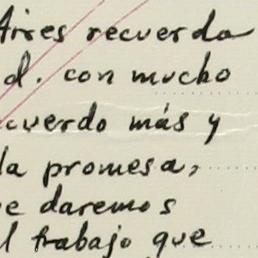 Aires recuerda
d. con mucho
cuerdo más y
la promesa,
e daremos
l trabajo que